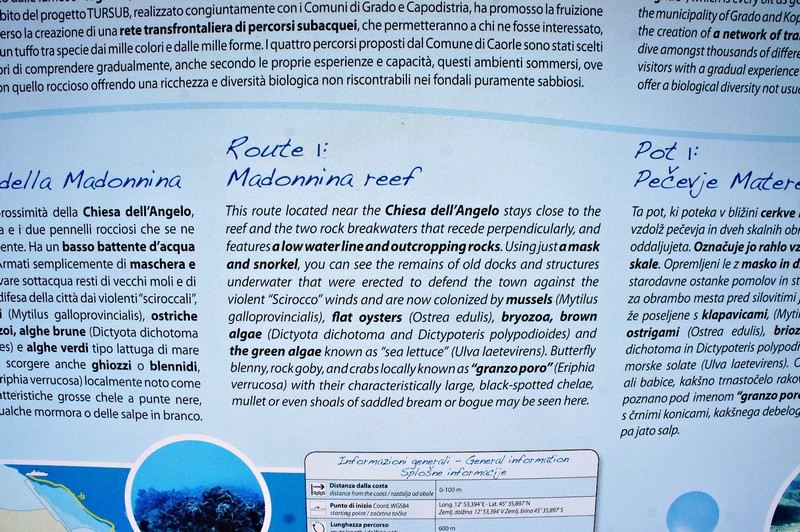 bito del progetto TURSUB, realizzato congiuntamente con i Comuni di Grado e Capodistria, ha promosso la fruizione
erso la creazione di una rete transfrontaliera di percorsi subacquei, che permetteranno a chi ne fosse interessato,
un tuffo tra specie dai mille colori e dalle mille forme. I quattro percorsi proposti dal Comune di Caorle sono stati scelti
ori di comprendere gradualmente, anche secondo le proprie esperienze e capacità, questi ambienti sommersi, ove
on quello roccioso offrendo una ricchezza e diversità biologica non riscontrabili nei fondali puramente sabbiosi.
the municipality of Grado and Kop
the creation of a network of tra
dive amongst thousands of differe
visitors with a gradual experience
offer a biological diversity not usu
della Madonnina
rossimità della Chiesa dell'Angelo,
a e i due pennelli rocciosi che se ne
ente. Ha un basso battente d'acqua
Armati semplicemente di maschera e
vare sottacqua resti di vecchi moli e di
difesa della città dai violenti "sciroccali",
i (Mytilus galloprovincialis), ostriche
zoi, alghe brune (Dictyota dichotoma
es) e alghe verdi tipo lattuga di mare
scorgere anche ghiozzi o blennidi,
riphia verrucosa) localmente noto come
atteristiche grosse chele a punte nere,
ualche mormora o delle salpe in branco.
Route 1:
Madonnina reef
This route located near the Chiesa dell'Angelo stays close to the
reef and the two rock breakwaters that recede perpendicularly, and
features a low water line and outcropping rocks. Using just a mask
and snorkel, you can see the remains of old docks and structures
underwater that were erected to defend the town against the
violent "Scirocco" winds and are now colonized by mussels (Mytilus
galloprovincialis), flat oysters (Ostrea edulis), bryozoa, brown
algae (Dictyota dichotoma and Dictyopteris polypodioides) and
the green algae known as "sea lettuce" (Ulva laetevirens). Butterfly
blenny, rock goby, and crabs locally known as "granzo poro" (Eriphia
verrucosa) with their characteristically large, black-spotted chelae,
mullet or even shoals of saddled bream or bogue may be seen here.
Pot 1:
Pečevje Matere
Ta pot, ki poteka v bližini cerkve
vzdolž pečevja in dveh skalnih obr
oddaljujeta. Označuje jo rahlo vz
skale. Opremljeni le z masko in d
starodavne ostanke pomolov in st
za obrambo mesta pred silovitimi
že poseljene s klapavicami, (Myti
ostrigami (Ostrea edulis), brioz
dichotoma in Dictyopteris polypodi
morske solate (Ulva laetevirens). O
ali babice, kakšno trnastočelo rakov
poznano pod imenom "granzo poro
s črnimi konicami, kakšnega debelog
pa jato salp.
Informazioni generali - General information
Splošne informacije
Distanza dalla costa
distance from the coast / razdalja od obale
0-100 m
Punto di inizio Coord. WGS84
starting point / začetna točka
Long. 12° 53,394'E - Lat. 45° 35,897'N
Zemlj. dolžina 12° 53,394'V Zemlj. širina 45° 35,897'S
Lunghezza percorso
600 m